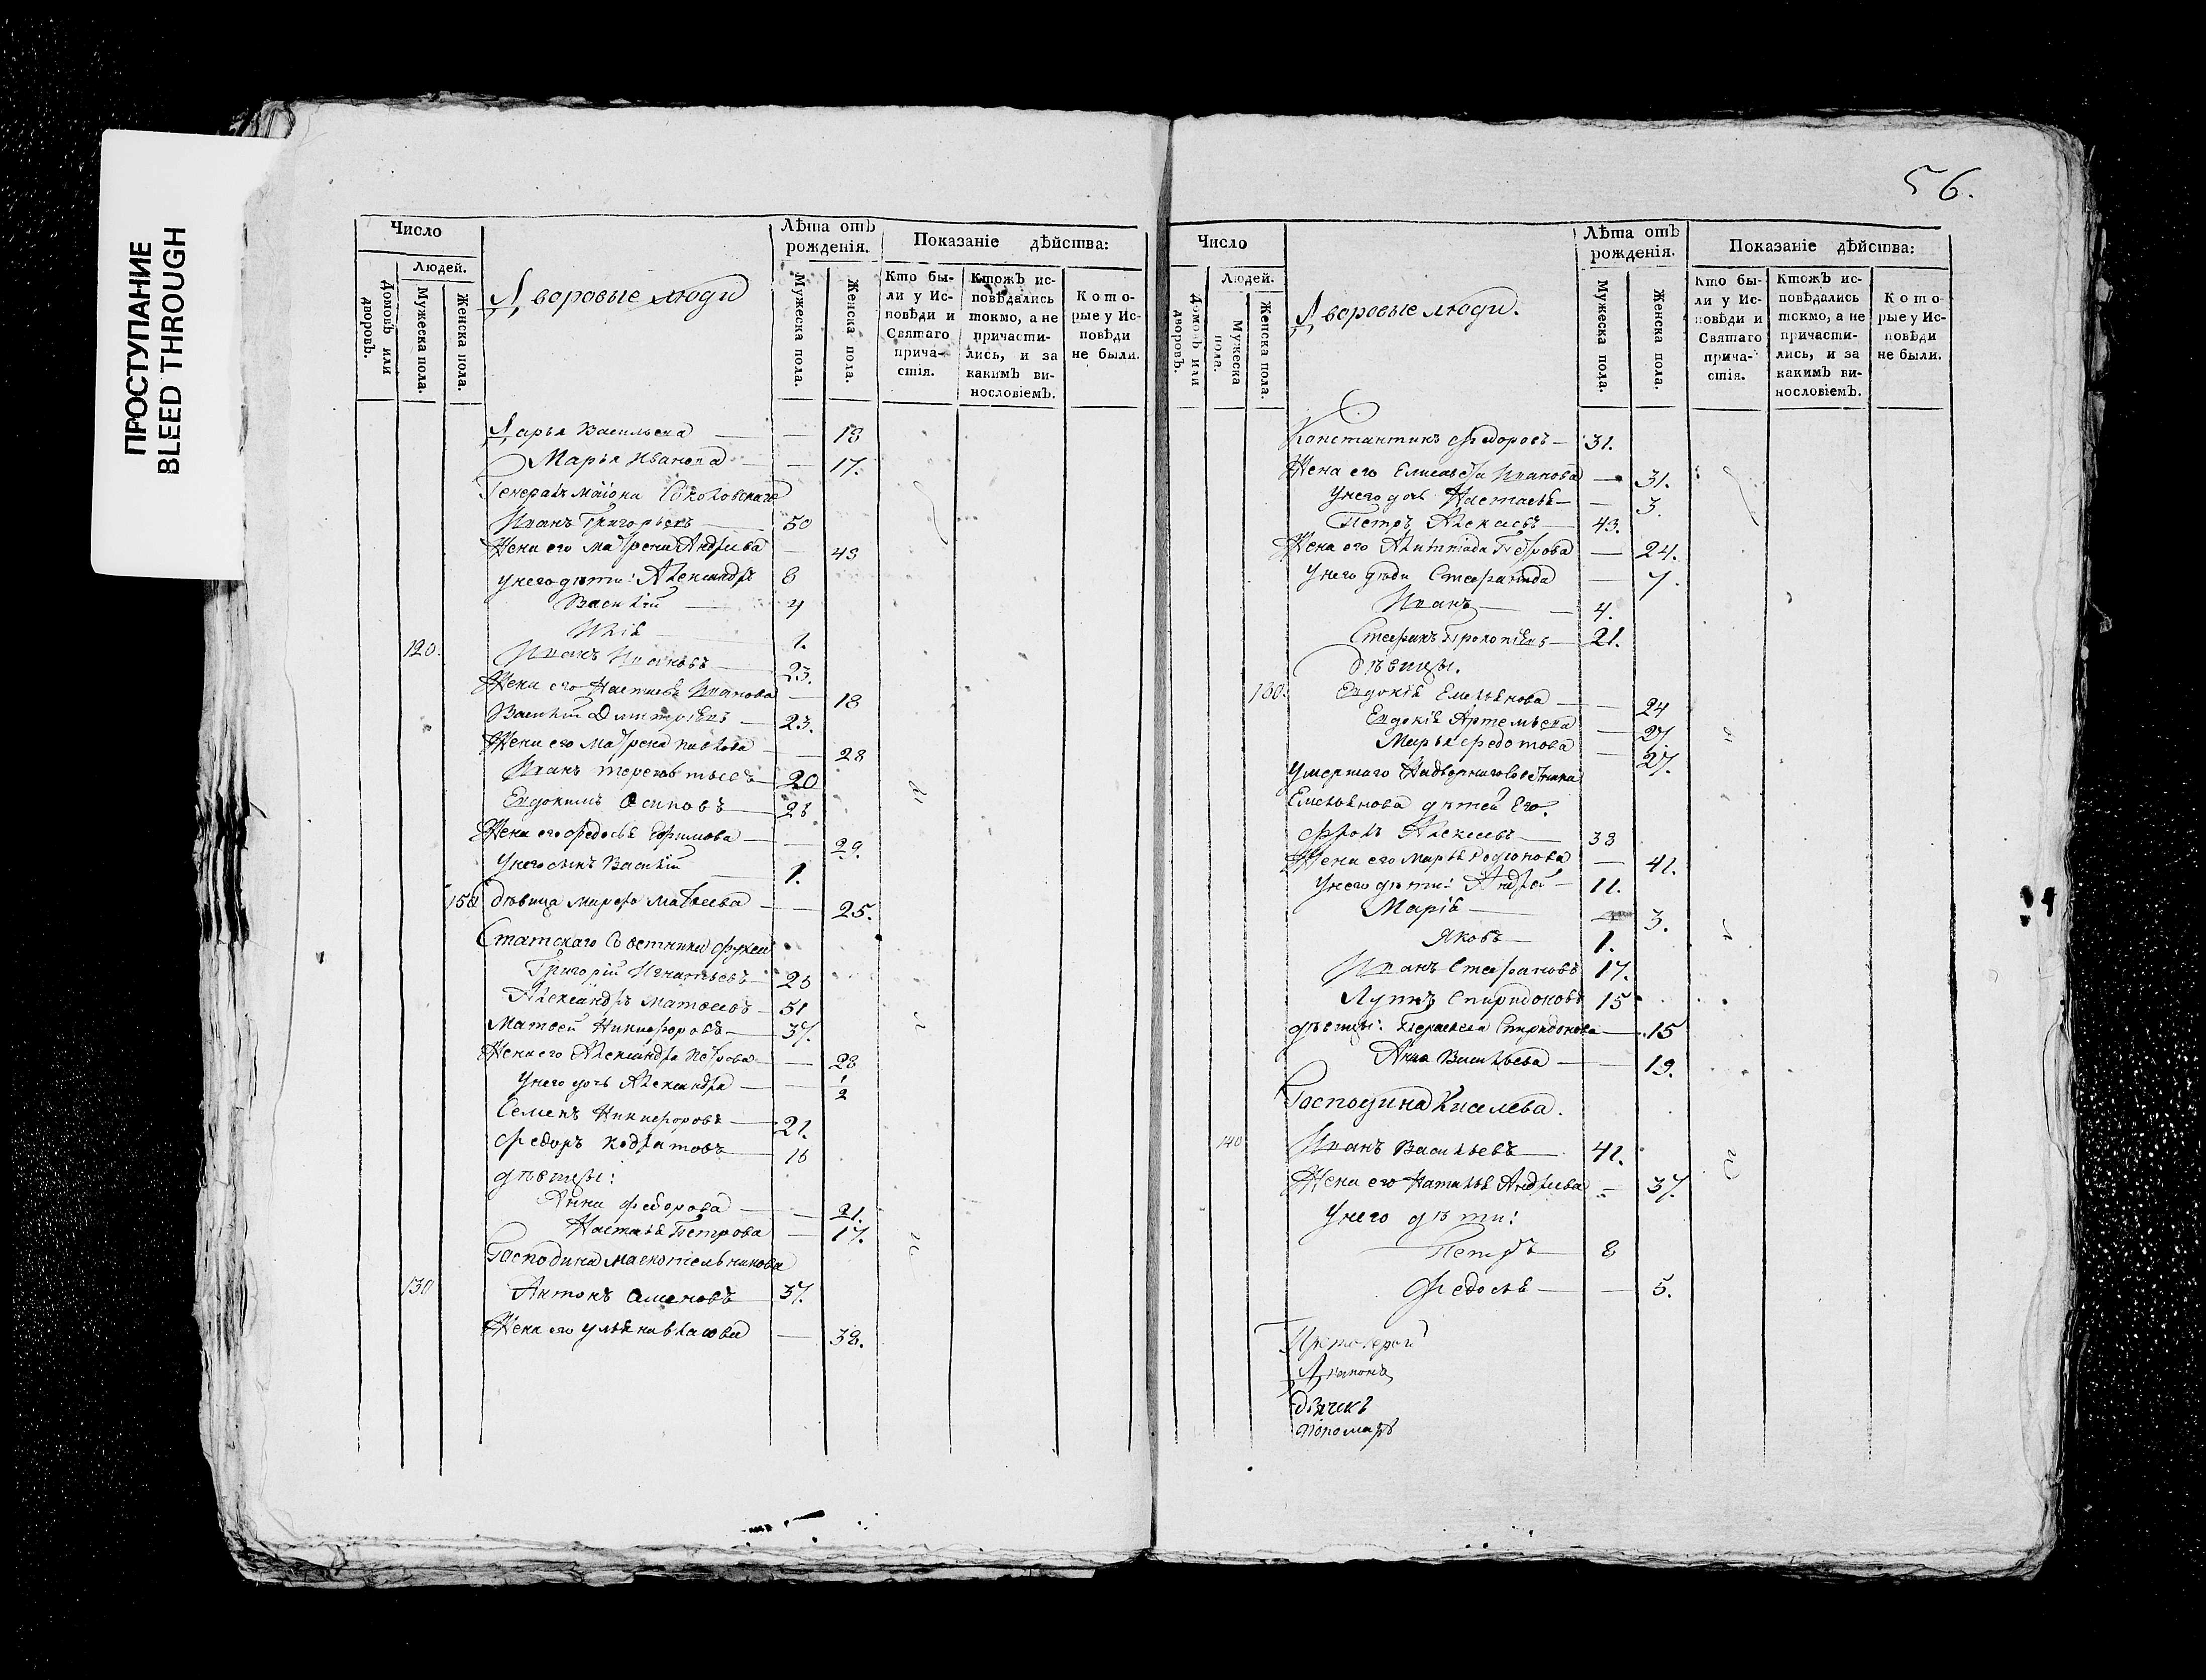 ПРОСТУПАНИЕ
BLEED THROUGH
56.
Число
Людей.
Домовъ или дворовъ.
Мужеска пола.
Женска пола.
Дворовые люди
Лѣта отъ рожденія.
Мужеска пола.
Женска пола.
Показаніе дѣйства:
Кто были у Исповѣди и Святаго причастія.
Ктожъ исповѣдались токмо, а не причастились, и за какимъ винословіемъ.
Которые у Исповѣди не были.
Дарья Васильева — — 18
Марья Иванова — — 17.
Генералъ маіора
Иванъ Григорьевъ — 50
Жена его Матрена Андреева — 48
у него дѣти: Александръ 8
Василій — 4
Илія — 1.
120. Иванъ Ивановъ — 23.
Жена его Настасья Иванова — 18
Василій Дмитріевъ — 23.
Жена его Матрена Павлова — 28
Иванъ — 20
Евдокимъ Осиповъ — 28.
Жена его Федосья Ефимова — — 29.
У него сынъ Василій — 1.
дѣвица Марфа Матвеева — — 25.
Статскаго Советника
Григорій Игнатьевъ — 28
Александръ Матвеевъ — 51
Матвей Никифоровъ — 37.
Жена его Александра Петрова — 28
У него дочь Александра — — 1/2
Семенъ Никифоровъ — 21.
Федоръ — 18
дѣвицы:
Анна Федорова — — 21.
Настасья Петрова — 17.
Господина
130 Антонъ Семеновъ 37.
Жена его Ульяна Власова — 38.
Число
Людей.
Домовъ или дворовъ.
Мужеска пола.
Женска пола.
Дворовые люди.
Лѣта отъ рожденія.
Мужеска пола.
Женска пола.
Показаніе дѣйства:
Кто были у Исповѣди и Святаго причастія.
Ктожъ исповѣдались токмо, а не причастились, и за какимъ винословіемъ.
Которые у Исповѣди не были.
Константинъ Федоровъ — 31.
Жена его Елисавета Иванова — 31.
У него дочь Настасья — — 3.
Петръ — 43.
Жена его Петрова — 24.
У него дѣти Стефанида — 7.
Иванъ — — 4.
Стефанъ Прокопіевъ — 21.
Дѣвицы.
Евдокія Емельянова — — 24
Евдокія Артемьева — 27.
Марья Федотова — 27.
Умершаго Надворнаго Советника
Емельянова дѣтей Его.
Фролъ Алексеевъ — 38
Жена его Марья Родионова — 41.
У него дѣти: Андрей — 11.
Марія — 3.
Яковъ — 1.
Иванъ Стефановъ 17.
Спиридоновъ 15
дѣвицы: Спиридонова — 15
Анна Васильева — — 19.
Господина Киселева.
140 Иванъ Васильевъ — 41.
Жена его Наталья Андреева — 37.
У него дѣти:
Петръ — 8
Федосья — — 5.
Протоіерей
Діаконъ
Дьячекъ
Пономарь